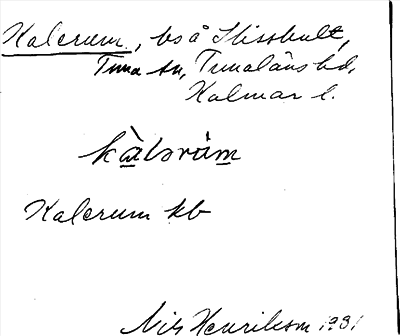 Kalerum, bs å Hisshult,
Tuna sn, Tunaläns hd,
Kalmar l.
kàlərùm
Kalerum kb
Nils Henrikson 1931